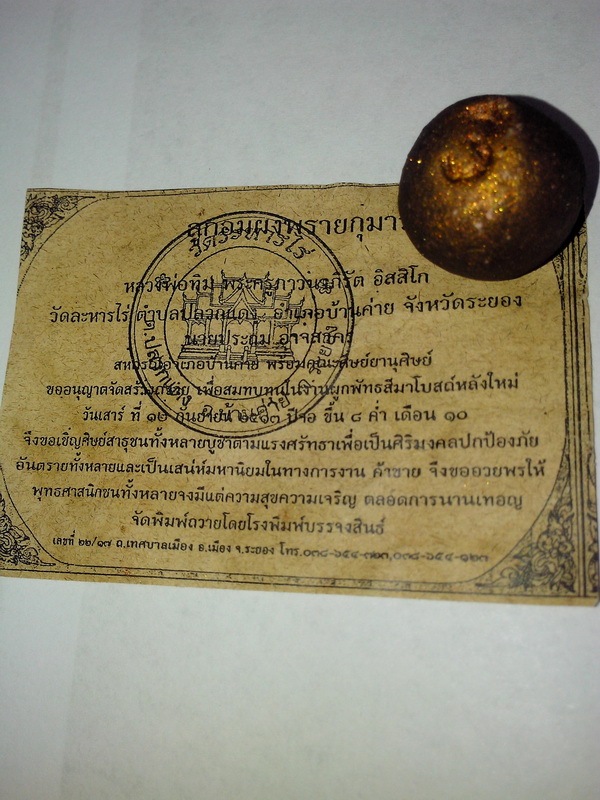 ลูกอมผงพรายกุมาร
วัดระหารไร่
หลวงพ่อทิม พระครูภาวนาภิรัต อิสสิโก
วัดละหารไร่ ตำบลปลวกแดง อำเภอบ้านค่าย จังหวัดระยอง
นายประถม อาจสาคร
อำเภอบ้านค่าย พร้อมคณะศิษย์ยานุศิษย์
ขออนุญาตจัดสร้าง เพื่อสมทบทุนในงานผูกพัทธสีมาโบสถ์หลังใหม่
วันเสาร์ ที่ ๑๒ กันยายน ๒๕๑๓ ปีจอ ขึ้น ๘ ค่ำ เดือน ๑๐
จึงขอเชิญศิษย์สาธุชนทั้งหลายบูชาตามแรงศรัทธาเพื่อเป็นศิริมงคลปกป้องภัย
อันตรายทั้งหลายและเป็นเสน่ห์มหานิยมในทางการงาน ค้าขาย จึงขออวยพรให้
พุทธศาสนิกชนทั้งหลายจงมีแต่ความสุขความเจริญ ตลอดการนานเทอญ
จัดพิมพ์ถวายโดยโรงพิมพ์บรรจงสินธ์
เลขที่ ๒๒/๑๗ ถ.เทศบาลเมือง อ.เมือง จ.ระยอง โทร.๐๓๘-๖๕๔-๓๒๓,๐๓๘-๖๕๔-๑๒๓